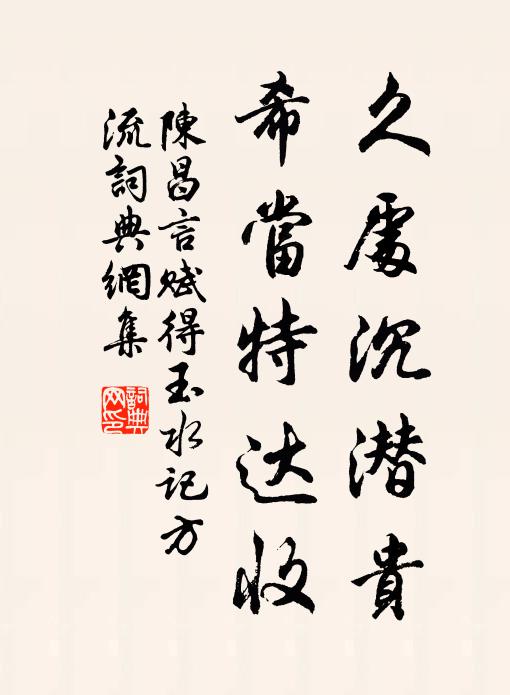 久處沉潜貴
希當特达收
陳昌言賦得玉水記方
流詞典網集
詞典网印